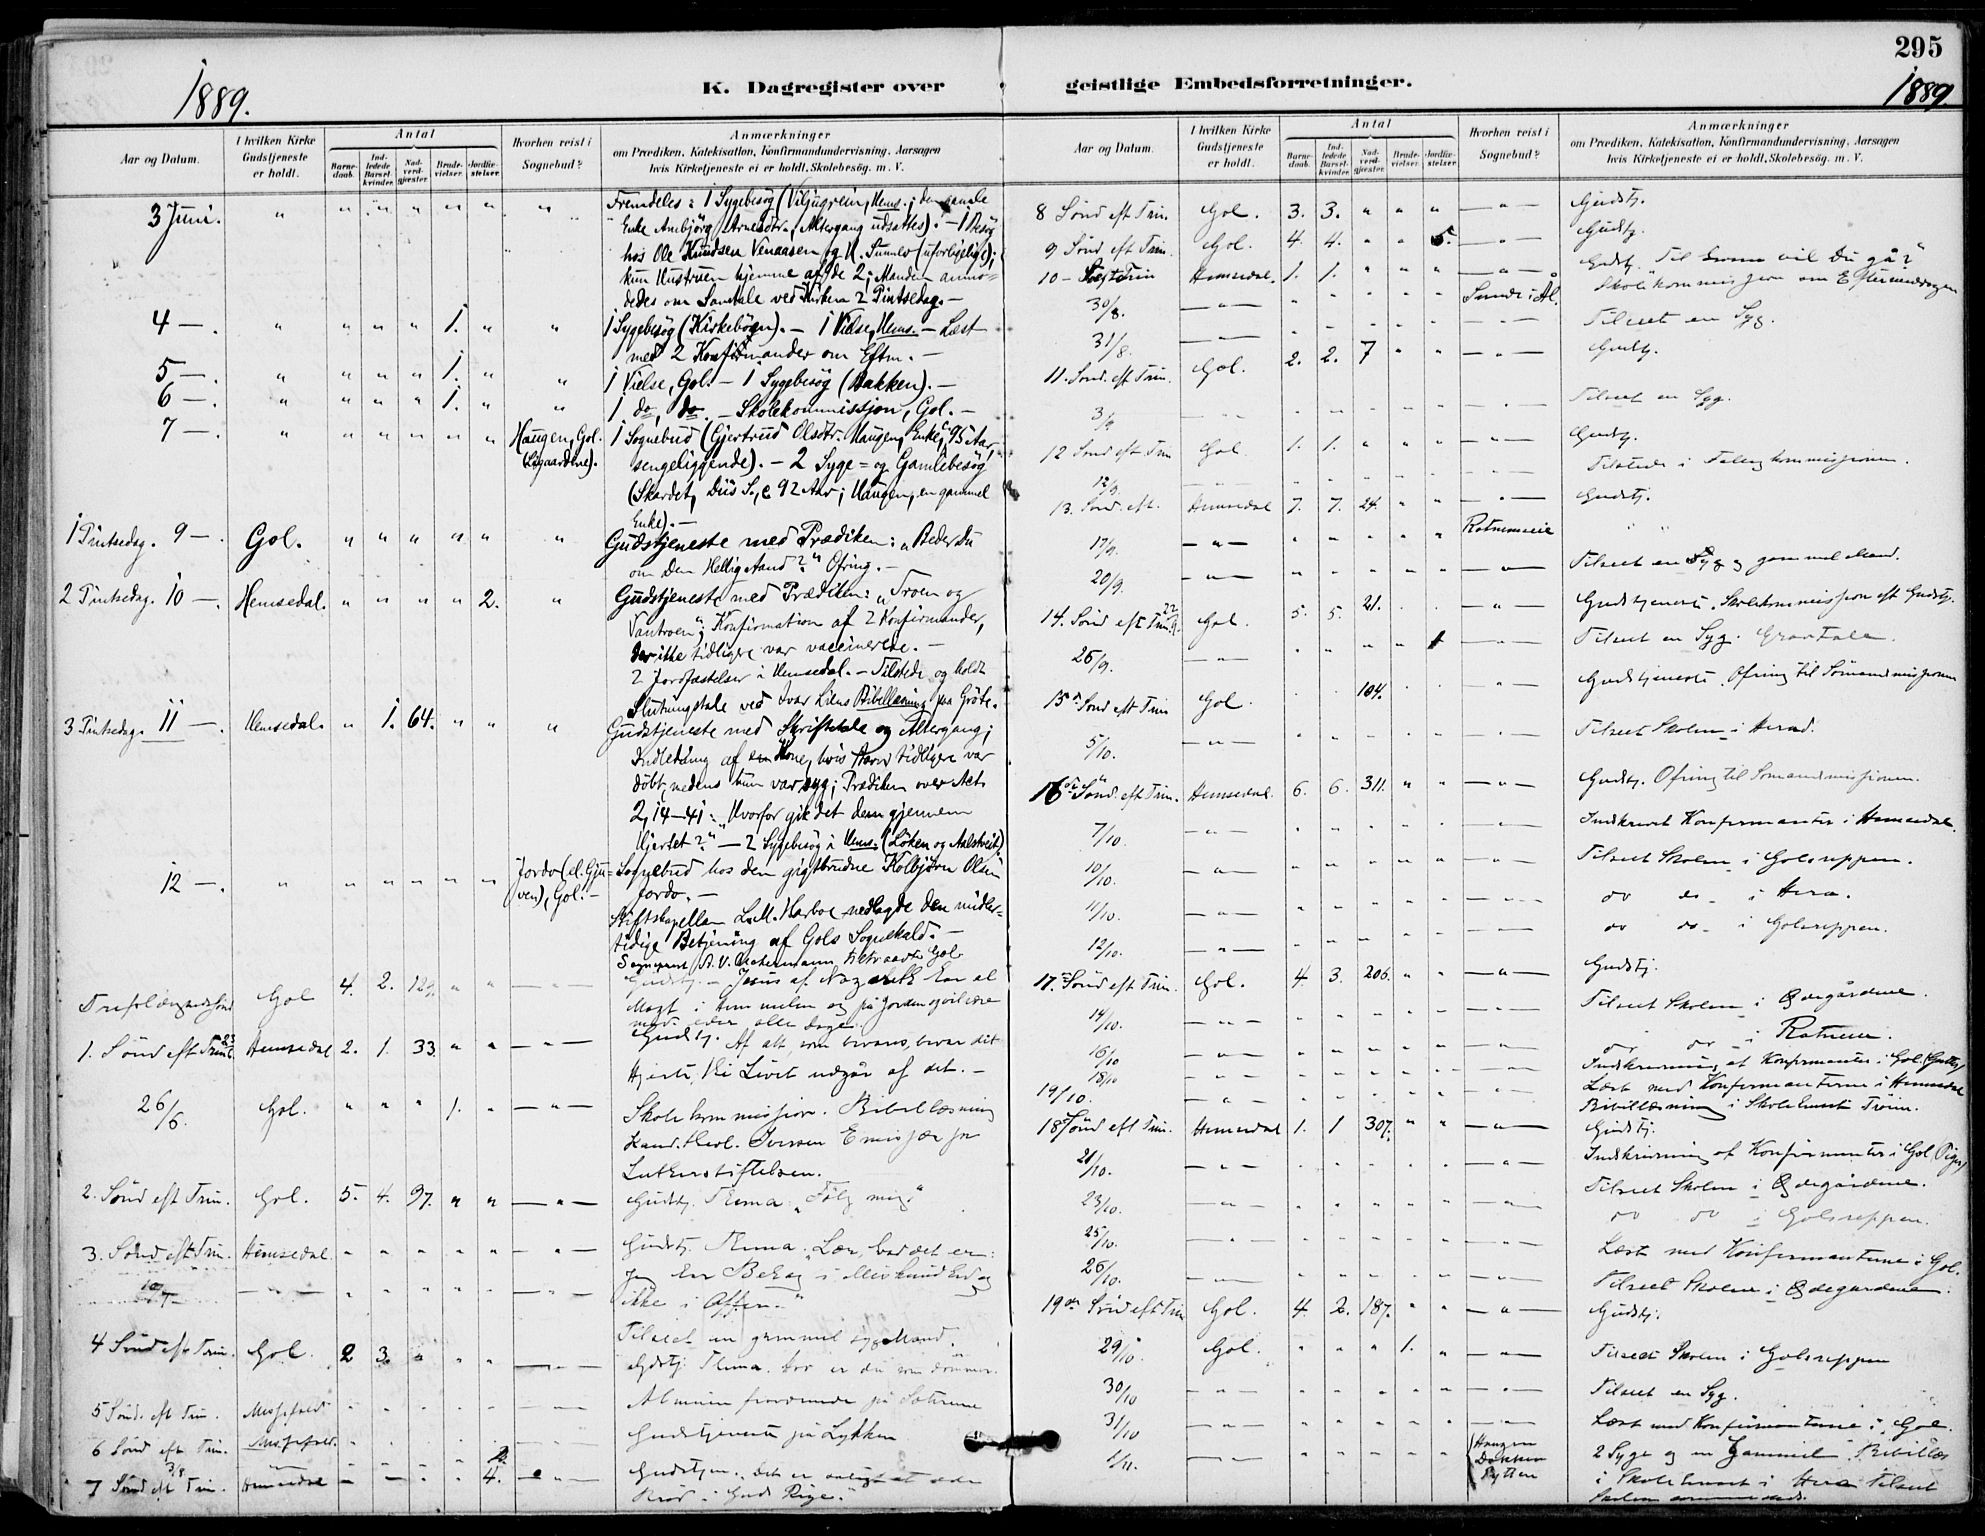 295
1889.
K. Dagregister over geistlige Embedsforretninger.
1889
Aar og Datum.
I hvilken Kirke Gudstjeneste er holdt.
Antal
Barnedaab.
Indledede Barselkvinder.
Nadverdgjæster.
Brudevielser.
Jordfæstelser.
Hvorhen reist i Sognebud?
Anmærkninger
om Prædiken, Katekisation, Konfirmandundervisning, Aarsagen
hvis Kirketjeneste ei er holdt, Skolebesøg. m. V.
3 Juni. " " " " " " " Fremdeles: 1 Sygebesøg (Viljugrein, Hems.; den gamle
Enke Ambjörg Arnesdtr., Altergang udsattes). – 1 Besög
hos Ole Knudsen Venaasen og H.
kun Hustruen hjemme af de 2; Manden anmo-
dedes om Samtale ved Kirken 2 Pintsedag. –
4 –. " " " " 1. " " 1 Sygebesög (Kirkebøen). – 1 Vielse, Hems. – Læst
med 2 Konfirmander om Eftm. –
5 –. " " " " 1. " " 1 Vielse, Gol. – 1 Sygebesög (Bakken). –
6 –. " " " " 1. " " 1 do, do. – Skolekommission, Gol. –
7 –. " " " " " " Haugen, Gol. 1 Sognebud (Gjertrud Olsdtr. Haugen, Enke, 95 Aar,
sengeliggende). – 2 Syge- og Gamlebesög
(Skardet, Diis S., c 92 Aar; Haugen, en gammel
Enke). –
1 Pintsedag. 9 –. Gol. " " " " " " Gudstjeneste med Prædiken: „Beder Du
om Den Hellig Aand?" Ofring. –
2 Pintsedag. 10 –. Hemsedal. " " " " 2. " Gudstjeneste med Prædiken: „Troen og
Vantroen"; Konfirmation af 2 Konfirmander,
der ikke tidligere var vaccinerede. –
2 Jordfæstelser i Hemsedal. – Tilstede og holdt
Slutningstale ved Ivar Liens Bibellæsning paa Gröte.
3 Pintsedag. 11 –. Hemsedal. " 1. 64. " " " Gudstjeneste med Skriftetale og Altergang;
Indledning af en Kone, hvis Barn tidligere var
döbt, medens hun var syg; Prædiken over Act.
2, 14–41: „Hvorfor gik det dem gjennem
Hjertet?" – 2 Sygebesög i Hems. (Löken og Aalstveit).
12 –. " " " " " " Jordo (el. Gjuven), Gol. – Sognebud hos den gigtbrudne Kolbjörn Olsen
Jordo. –
Stiftskapellan L. M. Harboe nedlagde den midler-
tidige Betjening af Gols Sognekald. –
Sogneprest A. V. tiltraadte Gol.
Gol 4. 2. 129. " " – " – Gudstj. – Jesus af Nazareth har al
Magt i Himmelen og på Jorden og vil være
med eder alle Dage.
1. Sönd eft Trin. Hemsedal 2. 1. 33. " " – " – Gudstj. Af alt, som bevares, bevar dit
Hjerte, thi Livet udgår af det. –
26/6. Gol. " " " 1. " – " – Skolekommission. Bibellæsning
Kand. theol. Iversen Emissær for
Lutherstiftelsen.
2. Sönd eft Trin. Gol. 5. 4. 97. " " – " – Gudstj. Thema „Følg mig"
3. Sönd eft Trin. Hemsedal " " " " " – " – Gudstj. Thema. Lær, hvad det er:
Jeg har Behag i Miskundhed og
ikke i Offer."
Tilseet en gammel syg Mand.
4 Sönd eft Trin. Gol. 2 3. " " " – " – Gdstj. Thema.
5 Sönd. eft Trin. Messefald
6 Sönd eft Trin. Messefald. Gudstjeneste på Lykkja
7 Sönd eft Trin. Hemsedal – – " " 4. – " –
Bröd i Guds Rige."
Aar og Datum.
I hvilken Kirke Gudstjeneste er holdt.
Antal
Barnedaab.
Indledede Barselkvinder.
Nadverdgjæster.
Brudevielser.
Jordfæstelser.
Hvorhen reist i Sognebud?
Anmærkninger
om Prædiken, Katekisation, Konfirmandundervisning, Aarsagen
hvis Kirketjeneste ei er holdt, Skolebesøg. m. V.
8 Sönd eft Trin. Gol. 3. 3. " " " – " – Gudstj.
9 Sönd eft Trin. Gol. 4. 4. " " 5. – " – Gudstj.
10 – Trin Hemsedal. 1. 1. " " " – " – Gdstj. Til hvem vil Du gå?"
30/8. – " – " " " " " Sundre i Ål. Skolekommission om Eftermiddagen
31/8. – " – – " – Tilseet en Syg.
11. Sönd. eft Trin. Gol. 2. 2. 7 " " – " – Gudstj.
3/9. – " – Tilseet en Syg.
12 Sönd eft Trin Gol. 1. 1. " " " – " – Gudstj.
12/9. Tilstede i kommissionen.
13. Sönd. eft. Hemsedal 7. 7. 24. " " – " – Gudstj.
17/9. – " – " " " " " Rotneneie " "
20/9. – " – " " " " " – " – Tilseet en Syg og gammel Mand.
14. Sönd eft Trin 22/9. Gol. 5. 5. 21. – " – Gudstjeneste. Skolekommission eft Gudstj.
26/9. – " – " " " " 1 – " – Tilseet en Syg. Gravtale.
15 Sönd eft Trin Gol. 104. – " – Gudstjeneste. Ofring til Sömandsmissionen
5/10. – " – – " – Tilseet Skolen i Herad.
16de Sönd. eft Trin. Hemsedal. 6. 6. 311. " " – " – Gudstj. Ofring til Sömandsmissionen.
7/10. – " – – " – Indskrevet Konfirmanter i Hemsedal.
10/10. – " – – " – Tilseet Skolen i Golsreppen.
11/10. – " – – " – do do i Hera.
12/10. – " – – " – do do i Golsreppen.
17. Sönd eft Trin. Gol. 4. 3. 206. " " – " – Gudstj.
14/10. – " – – " – Tilseet Skolen i Ødegårdene.
16/10 – " – – " – do do i Rotneim.
18/10 – " – Indskrivning af Konfirmanter i Gol. (Gutter)
19/10. – " – Læst med Konfirmanterne i Hemsedal
Bibellæsning i Skolehuset Trøim.
18 Sönd eft Trin. Hemsedal 1. 1 307. " " – " – Gudstj.
21/10. – " – Indskrivning af Konfirmanter i Gol. Piger
23/10. – " – Tilseet Skolen i Ødegårdene.
do do i Golsreppen.
25/10. – " – Læst med Konfirmanterne i Gol.
26/10. – " – Tilseet Skolen i Ødegårdene.
19de Sönd eft Trin Gol. 4. 2. 187. " " – " – Gudstj.
29/10. Gol. " " " 1. " – " – Tilseet Skolen i Golsreppen
30/10 – " – – " – Tilseet en Syg.
31/10 – " – – " – Læst med Konfirmanterne i Gol.
1/11. – " – 2 Syge og en Gammel. Bibellæs
i Skolehuset i Hera Tilseet